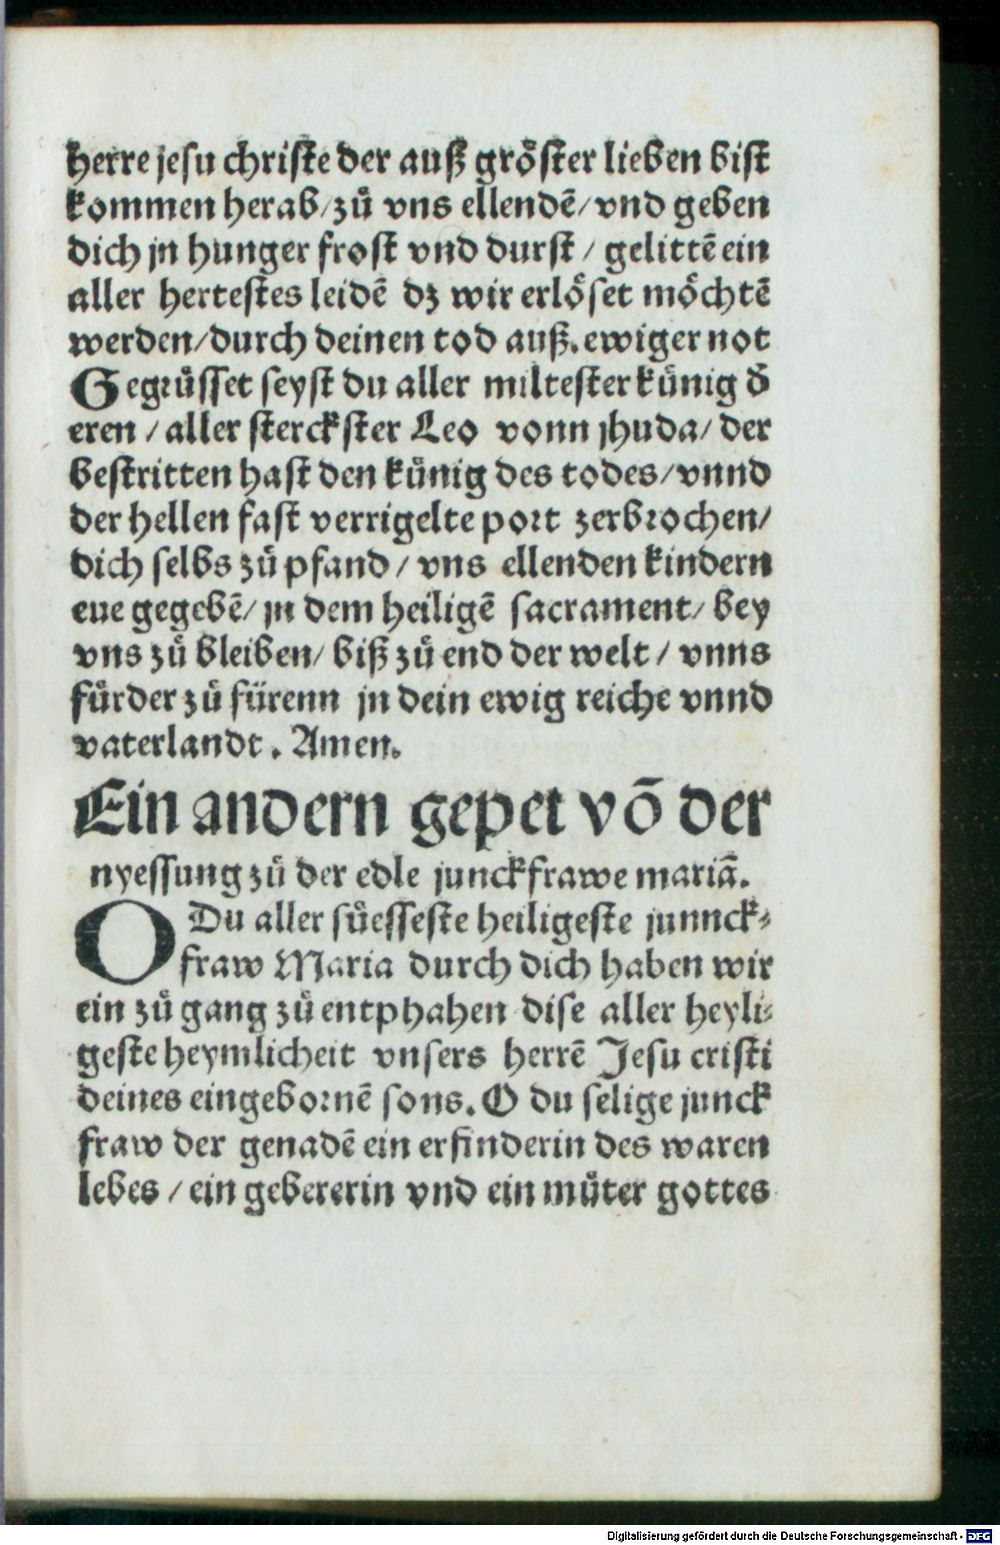 herre jesu christe der auß gröster lieben bist
kommen herab/zů vns ellendē/vnd geben
dich jn hunger frost vnd durst / gelittē ein
aller hertestes leidē dz wir erlöset möchtē
werden/durch deinen tod auß.ewiger not
Gegrůsset seyst du aller miltester kůnig đ
eren / aller sterckster Leo vonn jhuda/ der
bestritten hast den kůnig des todes/vnnd
der hellen fast verrigelte port zerbrochen/
dich selbs zů pfand / vns ellenden kindern
eue gegebē/ jn dem heiligē sacrament/ bey
vns zů bleiben/ biß zů end der welt / vnns
fůrder zů fürenn jn dein ewig reiche vnnd
vaterlandt. Amen.
Ein andern gepet vō der
nyessung zů der edle junckfrawe mariā.
O Du aller sůesseste heiligeste junnck⸗
fraw Maria durch dich haben wir
ein zů gang zů entphahen dise aller heyli⸗
geste heymlicheit vnsers herrē Jesu cristi
deines eingebornē sons. O du selige junck
fraw der genadē ein erfinderin des waren
lebes / ein gebererin vnd ein můter gottes
Digitalisierung gefördert durch die Deutsche Forschungsgemeinschaft - DFG